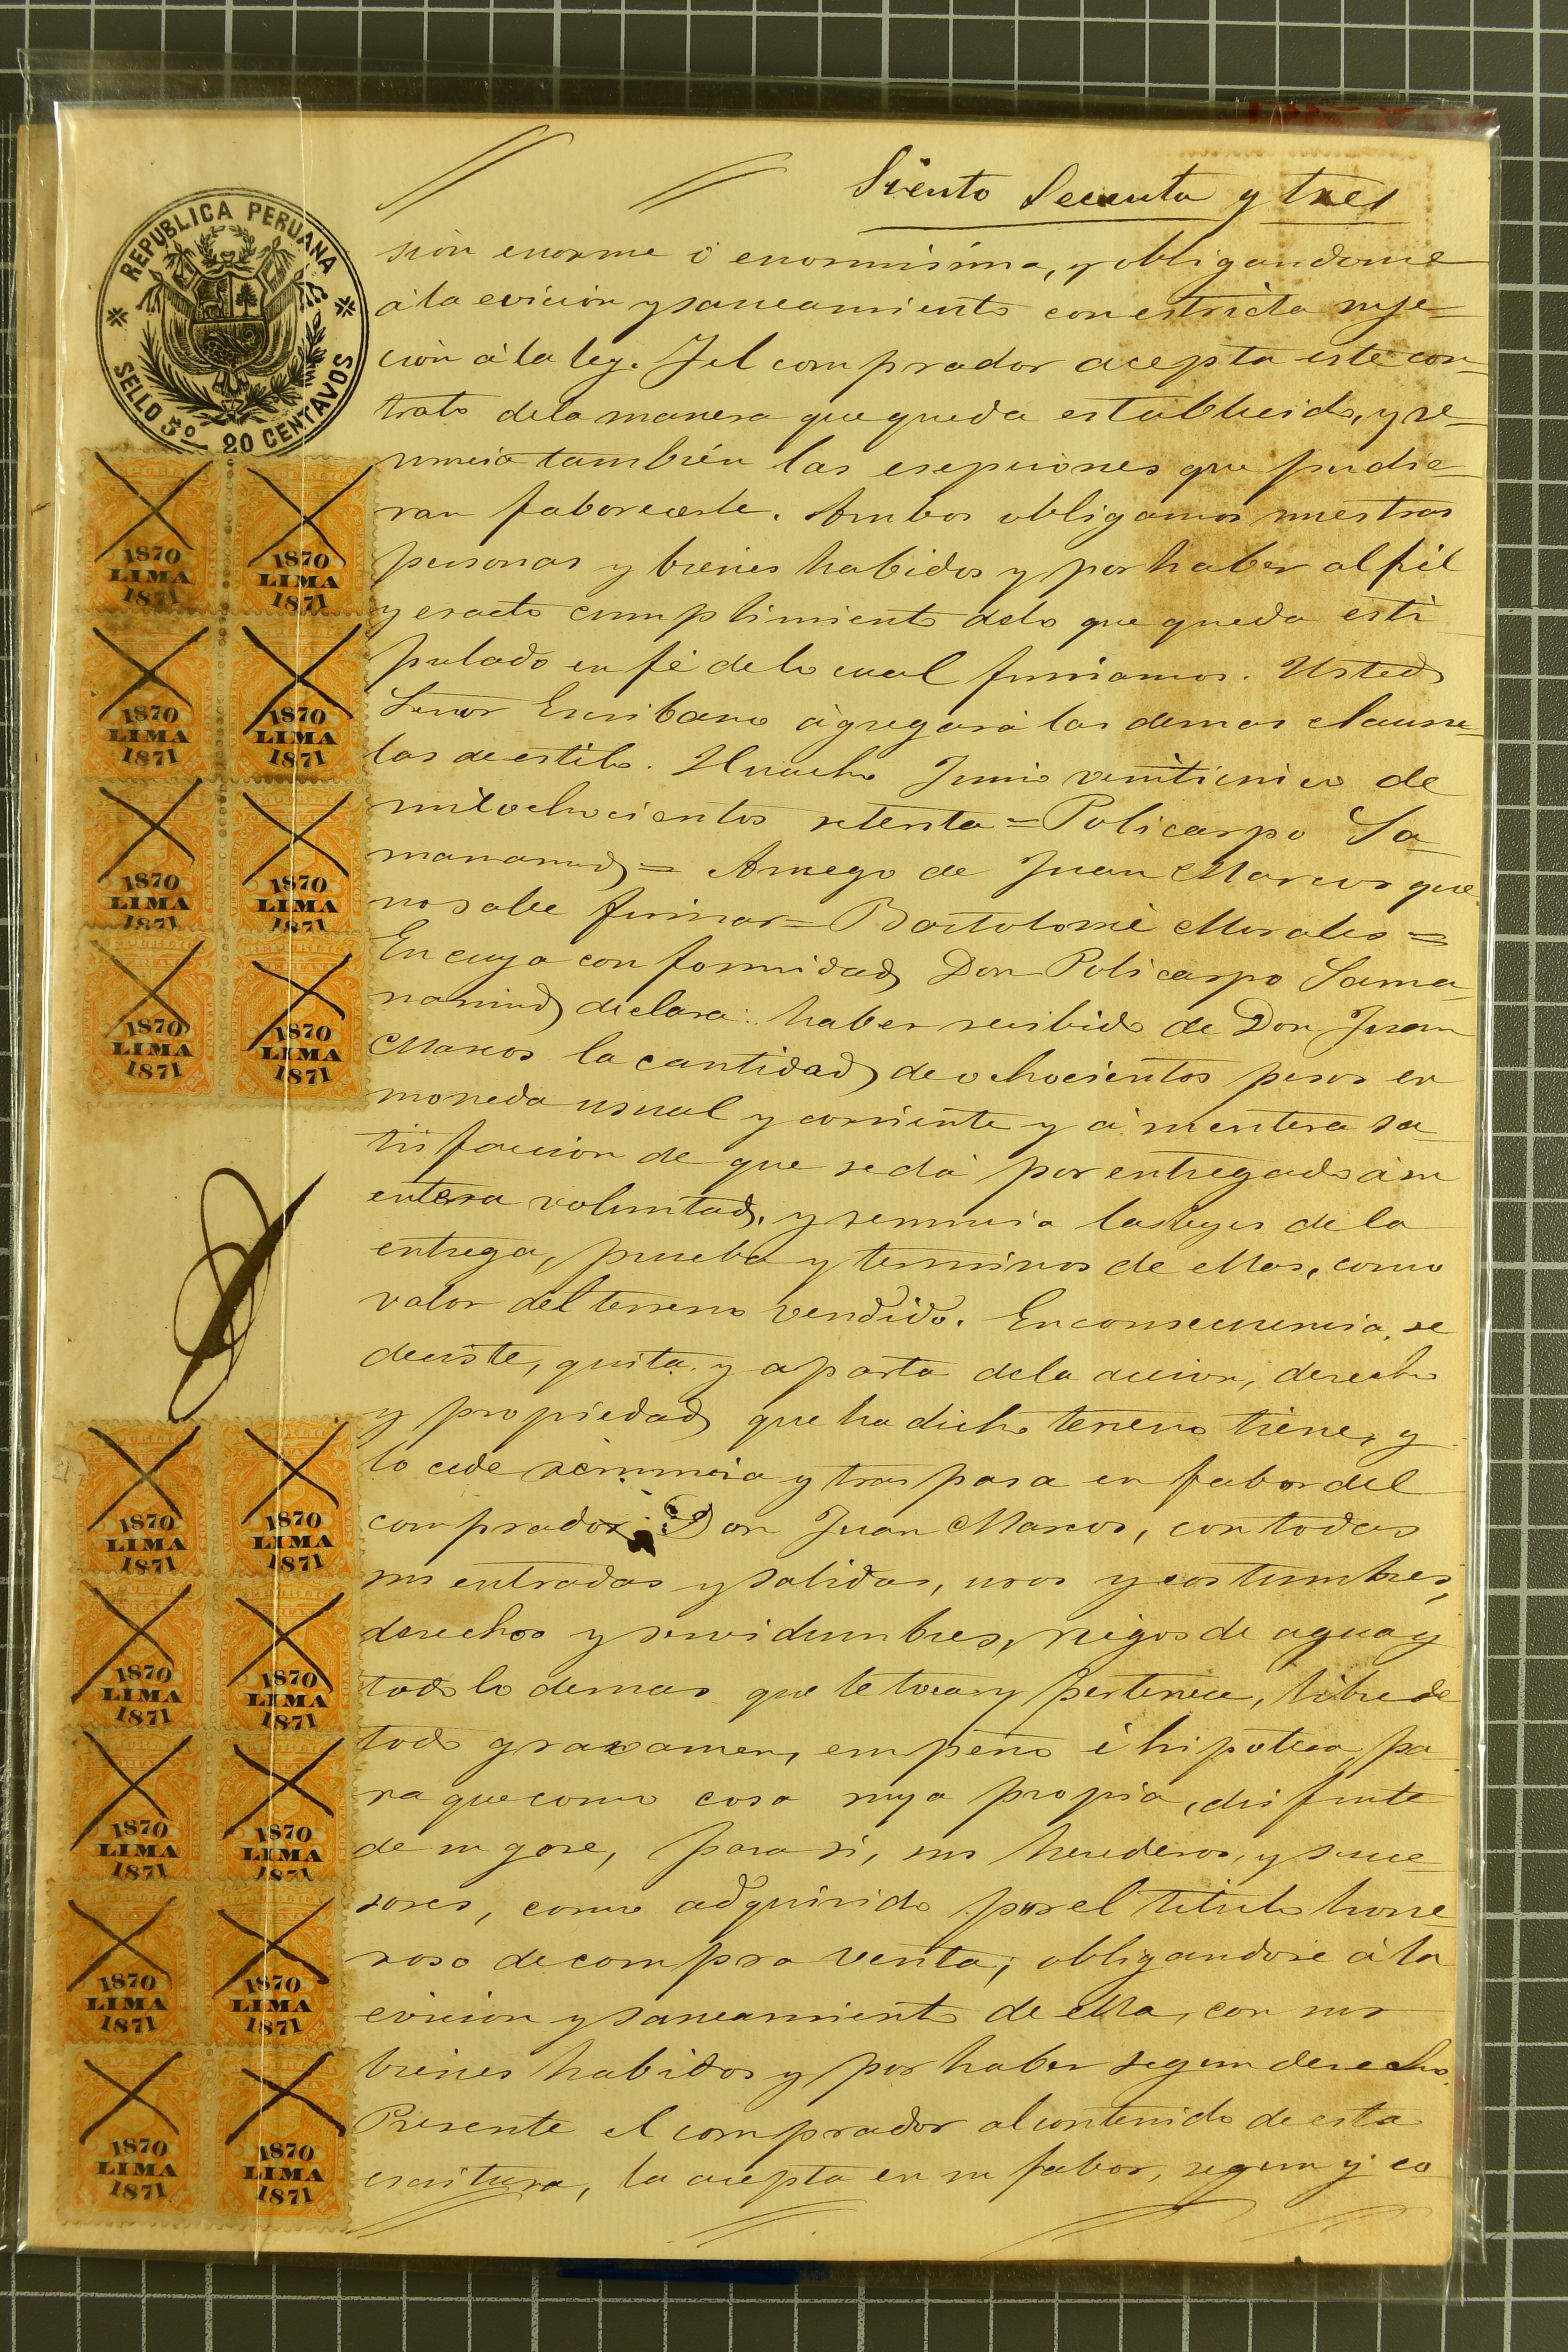 Siento Secenta y tres
REPUBLICA PERUANA
SELLO 5º 20 CENTAVOS
sion enorme ó enormisima, y obligandome
á la evicion y saneamiento con estricta suje-
cion á la ley. Y el comprador acepta este con-
trato dela manera que queda establecido, y re-
nuncia también las esepciones que pudie-
ran faborecerle. Ambos obligamos nuestras
personas y bienes habidos y por haber al fiel
y esacto cumplimiento delo que queda esti
pulado en fé de lo cual firmamos. Usted
Señor Escribano agregará las demas clausu-
las de estilo. Huacho Junio veinticinco de
mil ochocientos setenta = Policarpo Sa-
manamud = Arruego de Juan Marcos que
no sabe firmar = Bartolomé Morales =
En cuya conformidad Don Policarpo Sama-
namud declara: haber recibido de Don Juan
Marcos la cantidad de ochocientos pesos en
moneda usual y corriente y á su entera sa-
tisfaccion de que se dá por entregado á su
entera voluntad, y renuncia las leyes de la
entrega, prueba y terminos de ellas, como
valor del terreno vendido. En consecuencia, se
deciste, quita y aparta dela accion, derecho
y propiedad que ha dicho terreno tiene, y
lo cede renuncia y traspasa en fabor del
comprador Don Juan Marcos, con todas
sus entradas y salidas, usos y costumbres,
derechos y servidumbres, riegos de agua y
todo lo demas que le toca y pertenece, libre de
todo gravamen, empeño é hipoteca, pa-
ra que como cosa suya propia, disfrute
de su gose, para si, sus herederos, y suce-
sores, como adquirido por el titulo hone-
roso de compra venta; obligandose á la
evicion y saneamiento de ella, con sus
bienes habidos y por haber segun derecho.
Presente el comprador al contenido de esta
escritura, la acepta en su fabor, segun y co
1870
LIMA
1871
1870
LIMA
1871
1870
LIMA
1871
1870
LIMA
1871
1870
LIMA
1871
1870
LIMA
1871
1870
LIMA
1871
1870
LIMA
1871
1870
LIMA
1871
1870
LIMA
1871
1870
LIMA
1871
1870
LIMA
1871
1870
LIMA
1871
1870
LIMA
1871
1870
LIMA
1871
1870
LIMA
1871
1870
LIMA
1871
1870
LIMA
1871